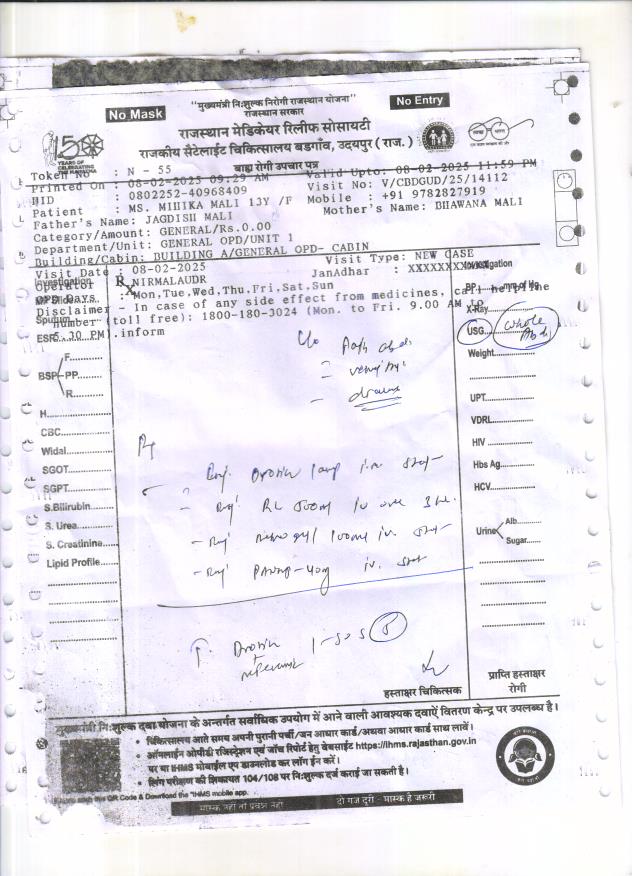 "मुख्यमंत्री निःशुल्क निरोगी राजस्थान योजना"
राजस्थान सरकार
No Mask
No Entry
राजस्थान मेडिकेयर रिलीफ सोसायटी
राजकीय सैटेलाईट चिकित्सालय बडगांव, उदयपुर ( राज. )
बाह्य रोगी उपचार पत्र
YEARS OF CELEBRATING THE MAHATMA
Token No : N - 55
Printed On : 08-02-2025 09:29 AM Valid Upto: 08-02-2025 11:59 PM
HID : 0802252-40968409 Visit No: V/CBDGUD/25/14112
Patient : MS. MIHIKA MALI 13Y /F Mobile : +91 9782827919
Father's Name: JAGDISH MALI Mother's Name: BHAWANA MALI
Category/Amount: GENERAL/Rs.0.00
Department/Unit: GENERAL OPD/UNIT 1
Building/Cabin: BUILDING A/GENERAL OPD- CABIN
Visit Date : 08-02-2025 Visit Type: NEW CASE
Operator : NIRMALAUDR JanAdhar : XXXXXXXXXX
OPD Days : Mon,Tue,Wed,Thu,Fri,Sat,Sun
Disclaimer - In case of any side effect from medicines, call helpline
number (toll free): 1800-180-3024 (Mon. to Fri. 9.00 AM to
5.30 PM).inform
Investigation
Rx
Sputum
ESR
BSP
F..........
PP..........
R..........
H..........
CBC..........
Widal..........
SGOT..........
SGPT..........
S.Bilirubin..........
S. Urea..........
S. Creatinine..........
Lipid Profile..........
Investigation
BP
mm of Hg
X-Ray
USG
whole Abd
Weight..........
UPT..........
VDRL..........
HIV ..........
Hbs Ag..........
HCV..........
Urine
Alb..........
Sugar..........
c/o Pain abd
Inj. Drotin 1amp i.m stat
- Inj. RL 500ml iv over 3 hr.
- Inj. 100ml i.v. stat
- Inj. 40mg i.v. stat
Drotin 1-SOS
हस्ताक्षर चिकित्सक
प्राप्ति हस्ताक्षर
रोगी
मुख्यमंत्री निःशुल्क दवा योजना के अन्तर्गत सर्वाधिक उपयोग में आने वाली आवश्यक दवाऐं वितरण केन्द्र पर उपलब्ध है।
• चिकित्सालय आते समय अपनी पुरानी पर्ची/जन आधार कार्ड/अथवा आधार कार्ड साथ लावें।
• ऑनलाईन ओपीडी रजिस्ट्रेशन एवं जाँच रिपोर्ट हेतु वेबसाईट https://ihms.rajasthan.gov.in
पर या IHMS मोबाईल एप डाउनलोड कर लॉग ईन करें।
• लिंग परीक्षण की शिकायत 104/108 पर निःशुल्क दर्ज कराई जा सकती है।
QR Code & Download the "IHMS mobile app.
मास्क नहीं तो प्रवेश नहीं
दो गज दूरी - मास्क है जरूरी